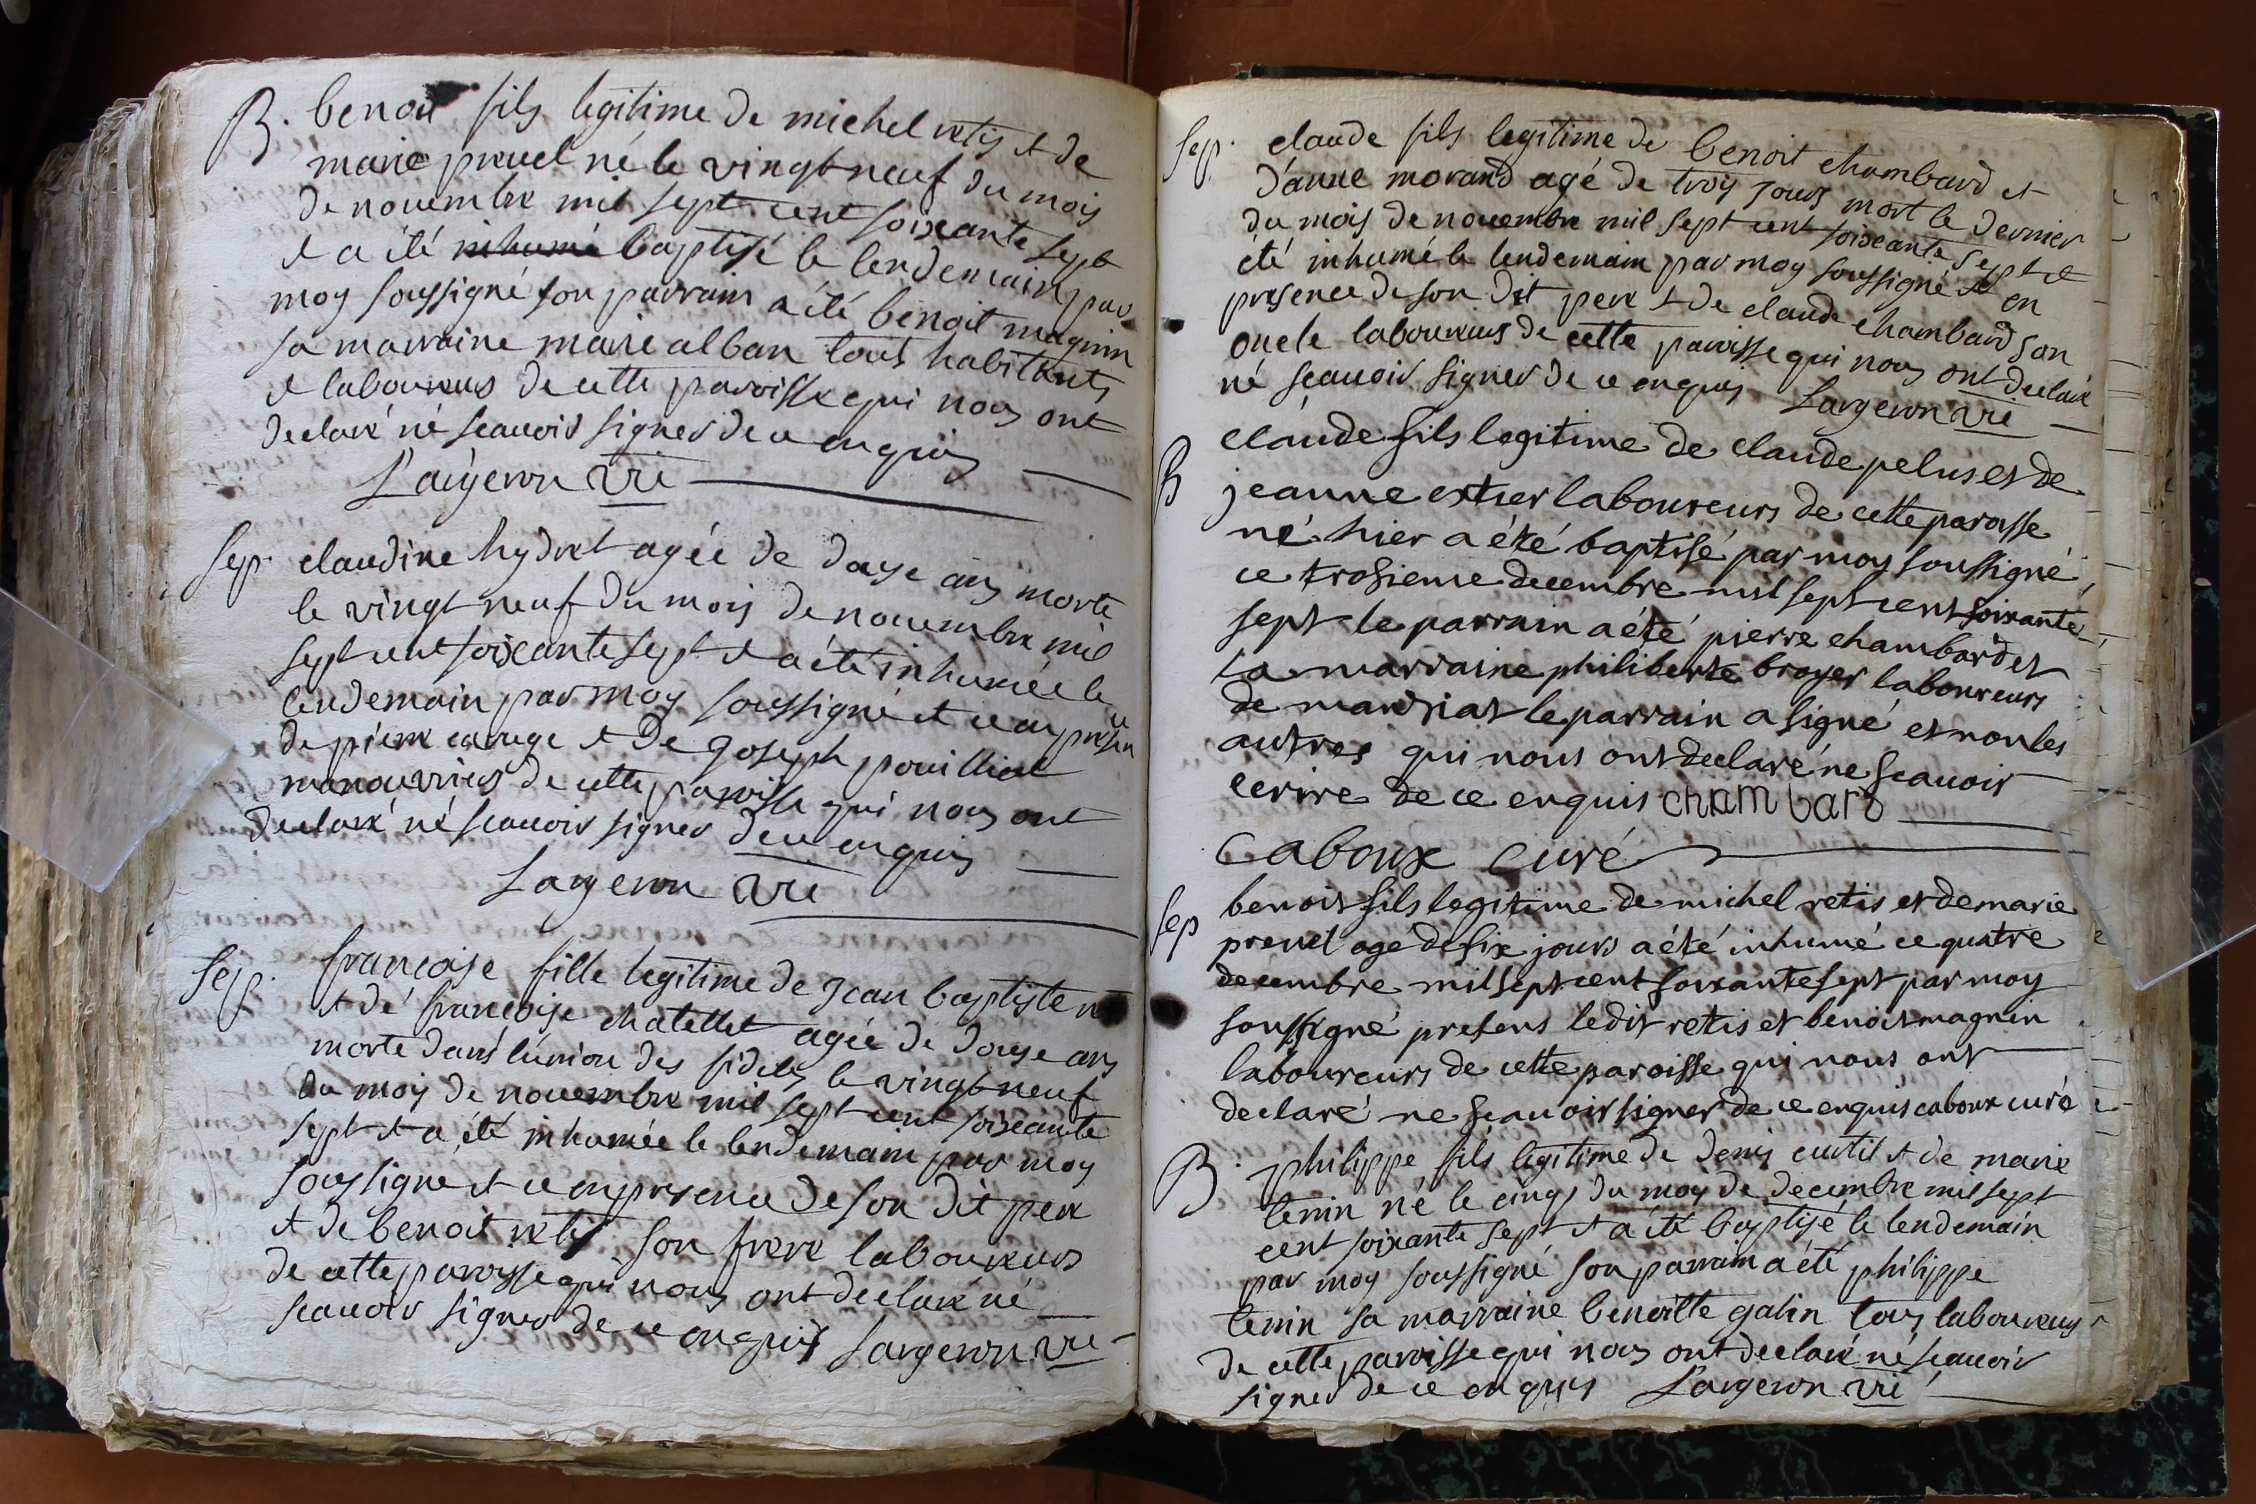 B. benoit fils legitime de michel retis et de
marie preuel né le vingt neuf du mois
de novembre mil sept cent soixante sept
et a été inhumé baptisé le lendemain par
moy soussigné son parrain a été benoit magnin
sa marraine marie alban tous habitants
et laboureurs de cette paroisse qui nous ont
declaré né scauoir signer de ce enquis
Largeron vic
Sep. claudine hydret agée de douse ans morte
le vingt neuf du mois de nouembre mil
sept cent soixante sept et a été inhumée le
lendemain par moy soussigné et ce en presen
de pierre carruge et de joseph pouilliat
manouvriers de cette paroisse qui nous ont
declaré né scauoir signer de ce enquis
Largeron vic
Sep. françoise fille legitime de jean baptiste
et dé françoise chatellet agée de douse ans
morte dans l'union des fideles le vingt neuf
du mois de nouembre mil sept cent soixante
sept et a été inhumée le lendemain par moy
soussigné et ce en presence de son dit pere
et de benoit retis son frere laboureurs
de cette paroisse qui nous ont declaré né
scauoir signer de ce enquis Largeron vic
Sep. claude fils legitime de benoit chambard et
d'anne morand agé de trois jours mort le dernier
du mois de nouembre mil sept cent soixante sept et
été inhumé le lendemain par moy soussigné et en
presence de son dit pere et de claude chambard son
oncle laboureurs de cette paroisse qui nous ont declaré
né scauoir signer de ce enquis Largeron vic
B claude fils legitime de claude pelus et de
jeanne extier laboureurs de cette paroisse
né hier a été baptisé par moy soussigné
ce troisieme decembre mil sept cent soixante
sept le parrain a été pierre chambard et
la marraine philiberte broyer laboureurs
de marsiat le parrain a signé et non les
autres qui nous ont declaré ne scauoir
ecrire de ce enquis chambard
Caboux curé
Sep benoit fils legitime de michel retis et de marie
preuel agé de six jours a été inhumé ce quatre
decembre mil sept cent soixante sept par moy
soussigné presens ledit retis et benoit magnin
laboureurs de cette paroisse qui nous ont
declaré ne scauoir signer de ce enquis caboux curé
B. philippe fils legitime de denis curtil et de marie
tenin né le cinq du mois de decembre mil sept
cent soixante sept et a été baptisé le lendemain
par moy soussigné son parrain a été philippe
tenin sa marraine benoitte galin tous laboureurs
de cette paroisse qui nous ont declaré né scauoir
signer de ce enquis Largeron vic